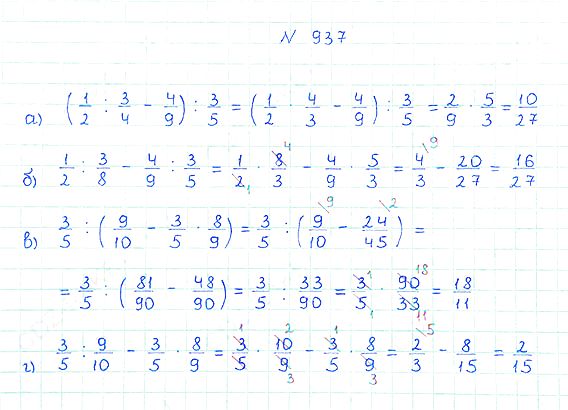 N 937
а) (1/2 : 3/4 - 4/9) : 3/5 = (1/2 · 4/3 - 4/9) : 3/5 = 2/9 · 5/3 = 10/27
б) 1/2 : 3/8 - 4/9 : 3/5 = 1/2 · 8/3 - 4/9 · 5/3 = 4/3 - 20/27 = 16/27
в) 3/5 : (9/10 - 3/5 · 8/9) = 3/5 : (9/10 - 24/45) =
= 3/5 : (81/90 - 48/90) = 3/5 : 33/90 = 3/5 · 90/33 = 18/11
г) 3/5 : 9/10 - 3/5 · 8/9 = 3/5 · 10/9 - 3/5 · 8/9 = 2/3 - 8/15 = 2/15